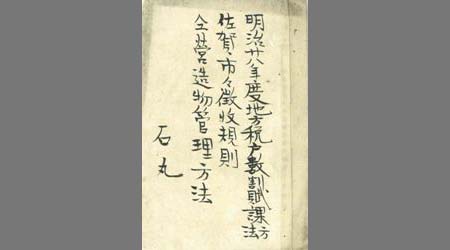 明治廿八年度地方税戸数割賦課方法
佐賀市々徴收規則
仝営造物管理方法
石丸